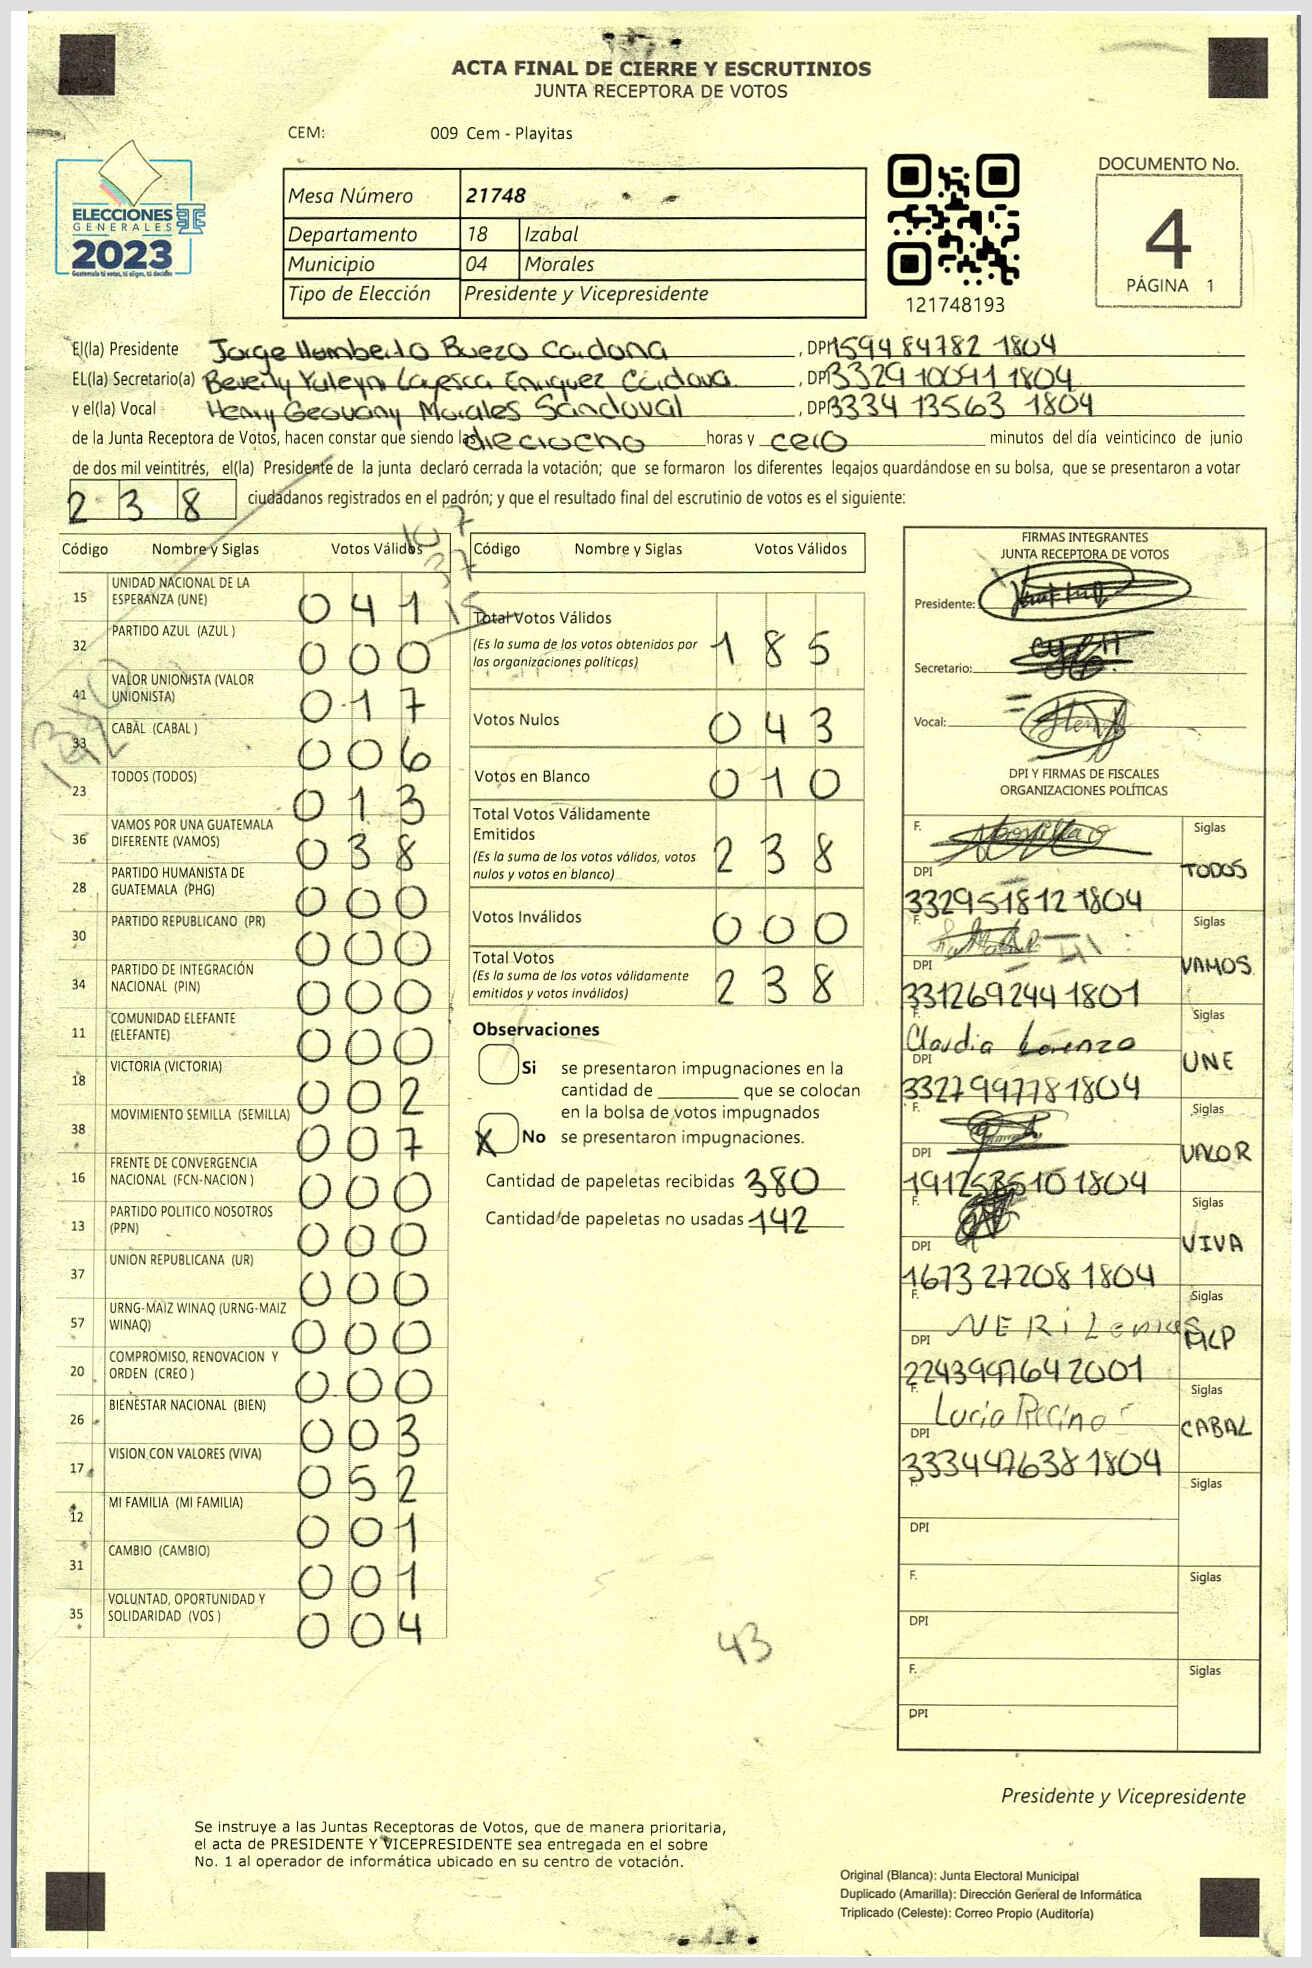 ACTA FINAL DE CIERRE Y ESCRUTINIOS
JUNTA RECEPTORA DE VOTOS
CEM: 009 Cem - Playitas
ELECCIONES
GENERALES
2023
Guatemala tú votas, tú eliges, tú decides
Mesa Número 21748
Departamento 18 Izabal
Municipio 04 Morales
Tipo de Elección Presidente y Vicepresidente
121748193
DOCUMENTO No.
4
PÁGINA 1
El(la) Presidente Jorge Humberto Buezo Cardona, DPI 1594 84782 1804
EL(la) Secretario(a) Beverly Yuleyn Enriquez Cardova, DPI 3329 10091 1804
y el(la) Vocal Henry Geovany Morales Sandoval, DPI 3334 13563 1804
de la Junta Receptora de Votos, hacen constar que siendo las dieciocho horas y cero minutos del día veinticinco de junio
de dos mil veintitrés, el(la) Presidente de la junta declaró cerrada la votación; que se formaron los diferentes legajos guardándose en su bolsa, que se presentaron a votar
2 3 8 ciudadanos registrados en el padrón; y que el resultado final del escrutinio de votos es el siguiente:
107
37
15
Código Nombre y Siglas Votos Válidos
15 UNIDAD NACIONAL DE LA ESPERANZA (UNE) 0 4 1
32 PARTIDO AZUL (AZUL ) 0 0 0
41 VALOR UNIONISTA (VALOR UNIONISTA) 0 1 7
33 CABAL (CABAL ) 0 0 6
23 TODOS (TODOS) 0 1 3
36 VAMOS POR UNA GUATEMALA DIFERENTE (VAMOS) 0 3 8
28 PARTIDO HUMANISTA DE GUATEMALA (PHG) 0 0 0
30 PARTIDO REPUBLICANO (PR) 0 0 0
34 PARTIDO DE INTEGRACIÓN NACIONAL (PIN) 0 0 0
11 COMUNIDAD ELEFANTE (ELEFANTE) 0 0 0
18 VICTORIA (VICTORIA) 0 0 2
38 MOVIMIENTO SEMILLA (SEMILLA) 0 0 7
16 FRENTE DE CONVERGENCIA NACIONAL (FCN-NACION ) 0 0 0
13 PARTIDO POLITICO NOSOTROS (PPN) 0 0 0
37 UNION REPUBLICANA (UR) 0 0 0
57 URNG-MAIZ WINAQ (URNG-MAIZ WINAQ) 0 0 0
20 COMPROMISO, RENOVACION Y ORDEN (CREO ) 0 0 0
26 BIENESTAR NACIONAL (BIEN) 0 0 3
17 VISION CON VALORES (VIVA) 0 5 2
12 MI FAMILIA (MI FAMILIA) 0 0 1
31 CAMBIO (CAMBIO) 0 0 1
35 VOLUNTAD, OPORTUNIDAD Y SOLIDARIDAD (VOS ) 0 0 4
Código Nombre y Siglas Votos Válidos
Total Votos Válidos
(Es la suma de los votos obtenidos por
las organizaciones políticas) 1 8 5
Votos Nulos 0 4 3
Votos en Blanco 0 1 0
Total Votos Válidamente
Emitidos
(Es la suma de los votos válidos, votos
nulos y votos en blanco) 2 3 8
Votos Inválidos 0 0 0
Total Votos
(Es la suma de los votos válidamente
emitidos y votos inválidos) 2 3 8
Observaciones
Si se presentaron impugnaciones en la
cantidad de ________ que se colocan
en la bolsa de votos impugnados
X No se presentaron impugnaciones.
Cantidad de papeletas recibidas 380
Cantidad de papeletas no usadas 142
43
FIRMAS INTEGRANTES
JUNTA RECEPTORA DE VOTOS
Presidente:
Secretario:
Vocal:
DPI Y FIRMAS DE FISCALES
ORGANIZACIONES POLÍTICAS
F. Siglas
DPI TODOS
332951812 1804
F. Siglas
DPI VAMOS
331269244 1801
F. Claudia Lorenzo Siglas
DPI UNE
332799778 1804
F. Siglas
DPI VALOR
191253510 1804
F. Siglas
DPI VIVA
1673 27208 1804
F. NERI Siglas
DPI MLP
224399764 2001
F. Lucia Recinos Siglas
DPI CABAL
333447638 1804
F. Siglas
DPI
F. Siglas
DPI
F. Siglas
DPI
Presidente y Vicepresidente
Se instruye a las Juntas Receptoras de Votos, que de manera prioritaria,
el acta de PRESIDENTE Y VICEPRESIDENTE sea entregada en el sobre
No. 1 al operador de informática ubicado en su centro de votación.
Original (Blanca): Junta Electoral Municipal
Duplicado (Amarilla): Dirección General de Informática
Triplicado (Celeste): Correo Propio (Auditoría)